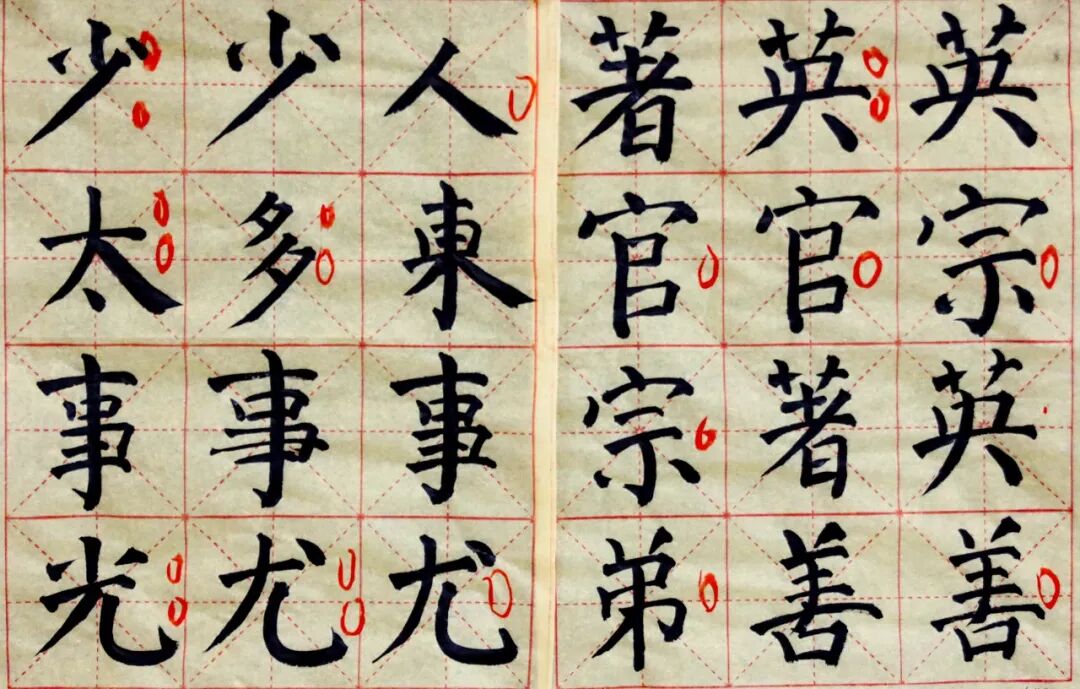 英宗英善
英官著善
著官宗弟
人東事尤
少多事尤
少太事光